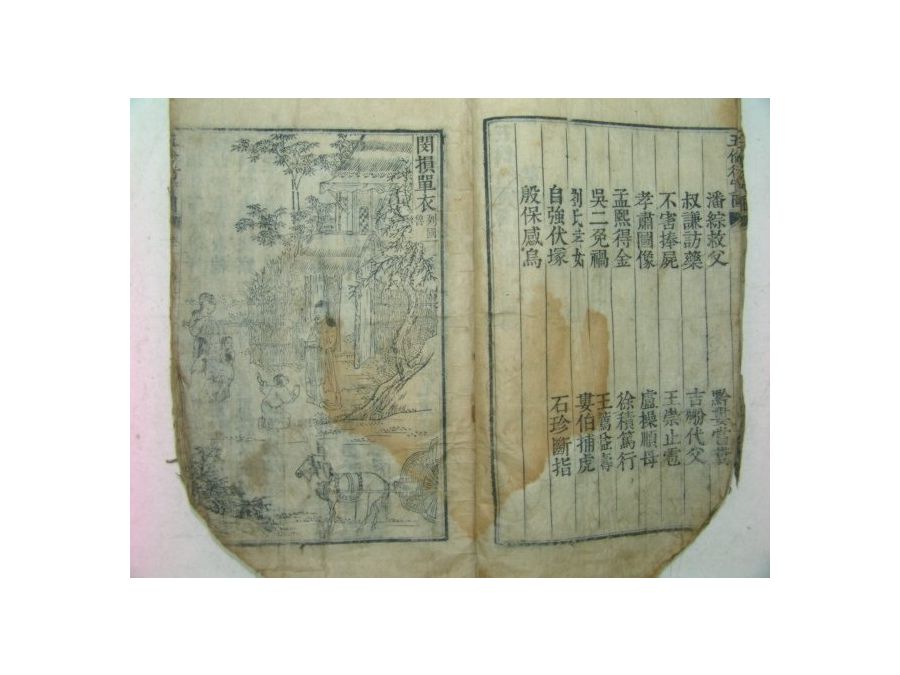 五倫行
潘綜救父 黔婁嘗糞
叔謙訪藥 吉翂代父
不害捧屍 王崇止雹
孝肅圖像 盧操順母
孟熙得金 徐積篤行
吳二免禍 王薦益壽
劉氏孝女 婁伯捕虎
自強伏塚 石珍斷指
殷保感烏
閔損單衣 列國 魯